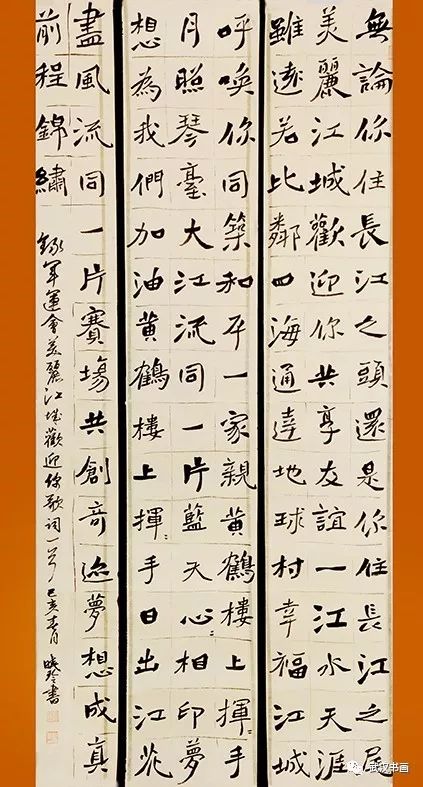 無論你住長江之頭還是你住長江之尾
美麗江城歡迎你共享友誼一江水天涯
雖遠若比鄰四海通達地球村幸福江城
呼喚你同築和平一家親黃鶴樓上揮〻手
月照琴臺大江流同一片藍天心〻相印夢
想為我們加油黃鶴樓上揮〻手日出江花
盡風流同一片賽場共創奇迹夢想成真
前程錦繡
錄軍運會美麗江城歡迎你歌詞一首 己亥春月 曉玲書
武汉书画